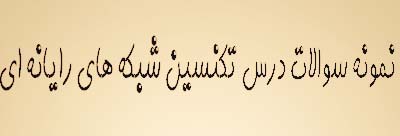 نمونه سوالات درس تکنسین شبکه های رایانه ای